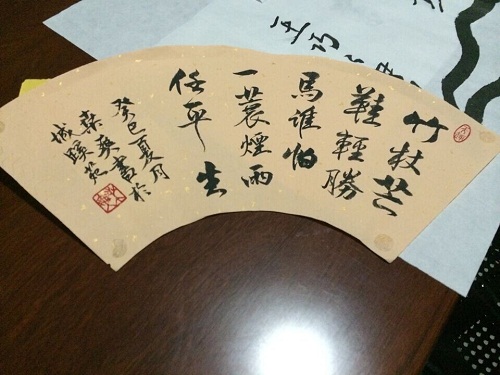 竹杖芒
鞋輕勝
馬谁怕
一蓑煙雨
任平生
癸巳夏月
奕書於
城